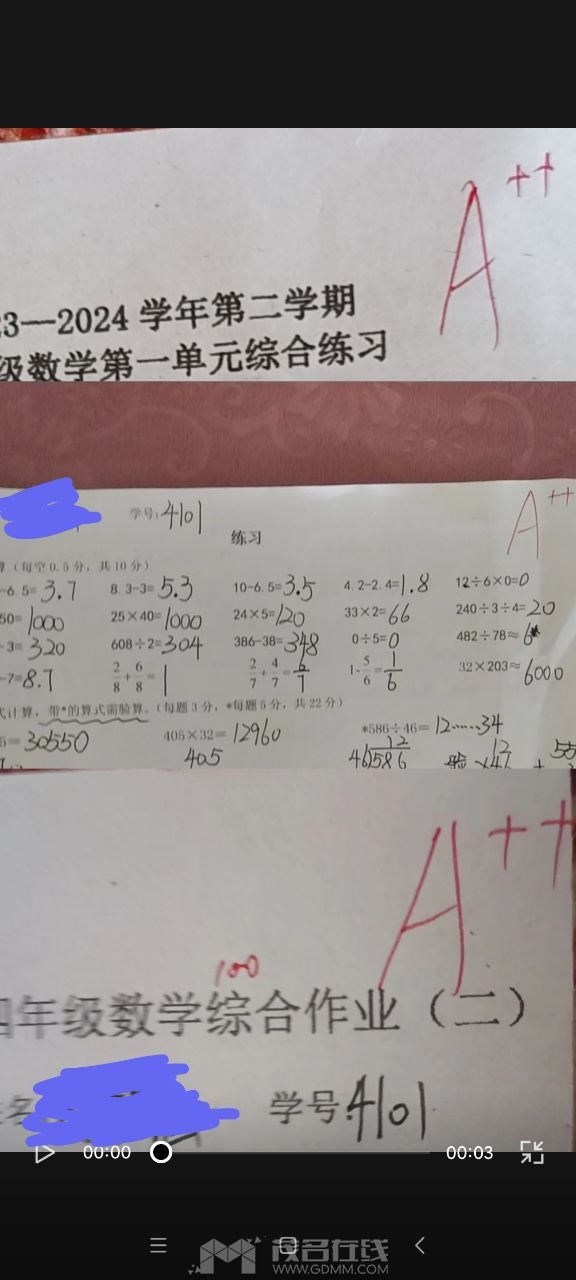 A++
23—2024 学年第二学期
级数学第一单元综合练习
A++
学号:4101
练习
算（每空0.5分，共10分）
-6.5=3.7 8.3-3=5.3 10-6.5=3.5 4.2-2.4=1.8 12÷6×0=0
50=1000 25×40=1000 24×5=120 33×2=66 240÷3÷4=20
-3=320 608÷2=304 386-38=348 0÷5=0 482÷78≈6
-7=8.7 2/8+6/8=1 2/7+4/7=6/7 1-5/6=1/6 32×203≈6000
式计算，带*的算式需验算。（每题3分，*每题5分，共22分）
5=30550 405×32=12960 *586÷46=12……34
405 12 12 55
46 586 验 ×46 +
A++
100
四年级数学综合作业（二）
姓名 学号:4101
00:00 00:03
茂名在线
WWW.GDMM.COM